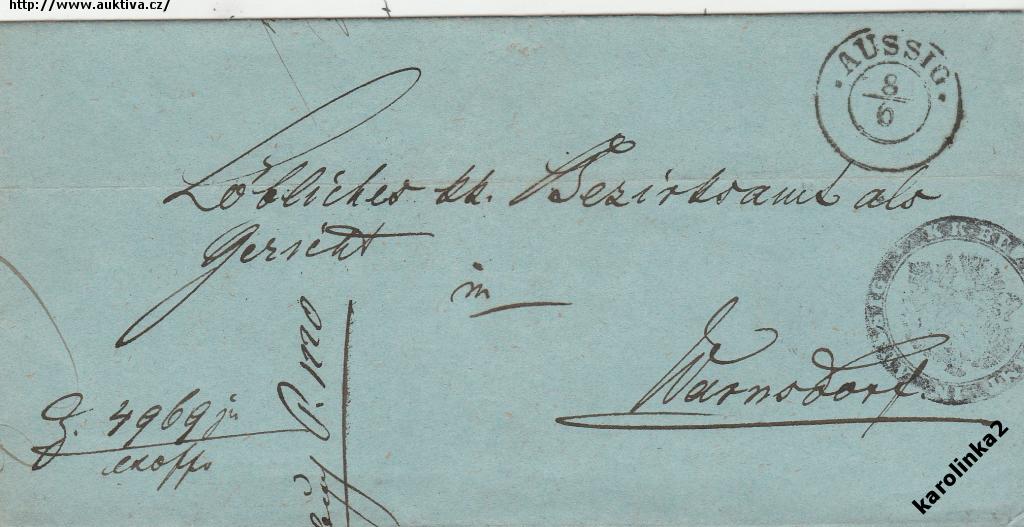 http://www.auktiva.cz/
AUSSIG
8/6
Löbliches kk. Bezirksamt als
Gericht
in
Warnsdorf.
Z. 4969 ju
exoffo
karolinka2